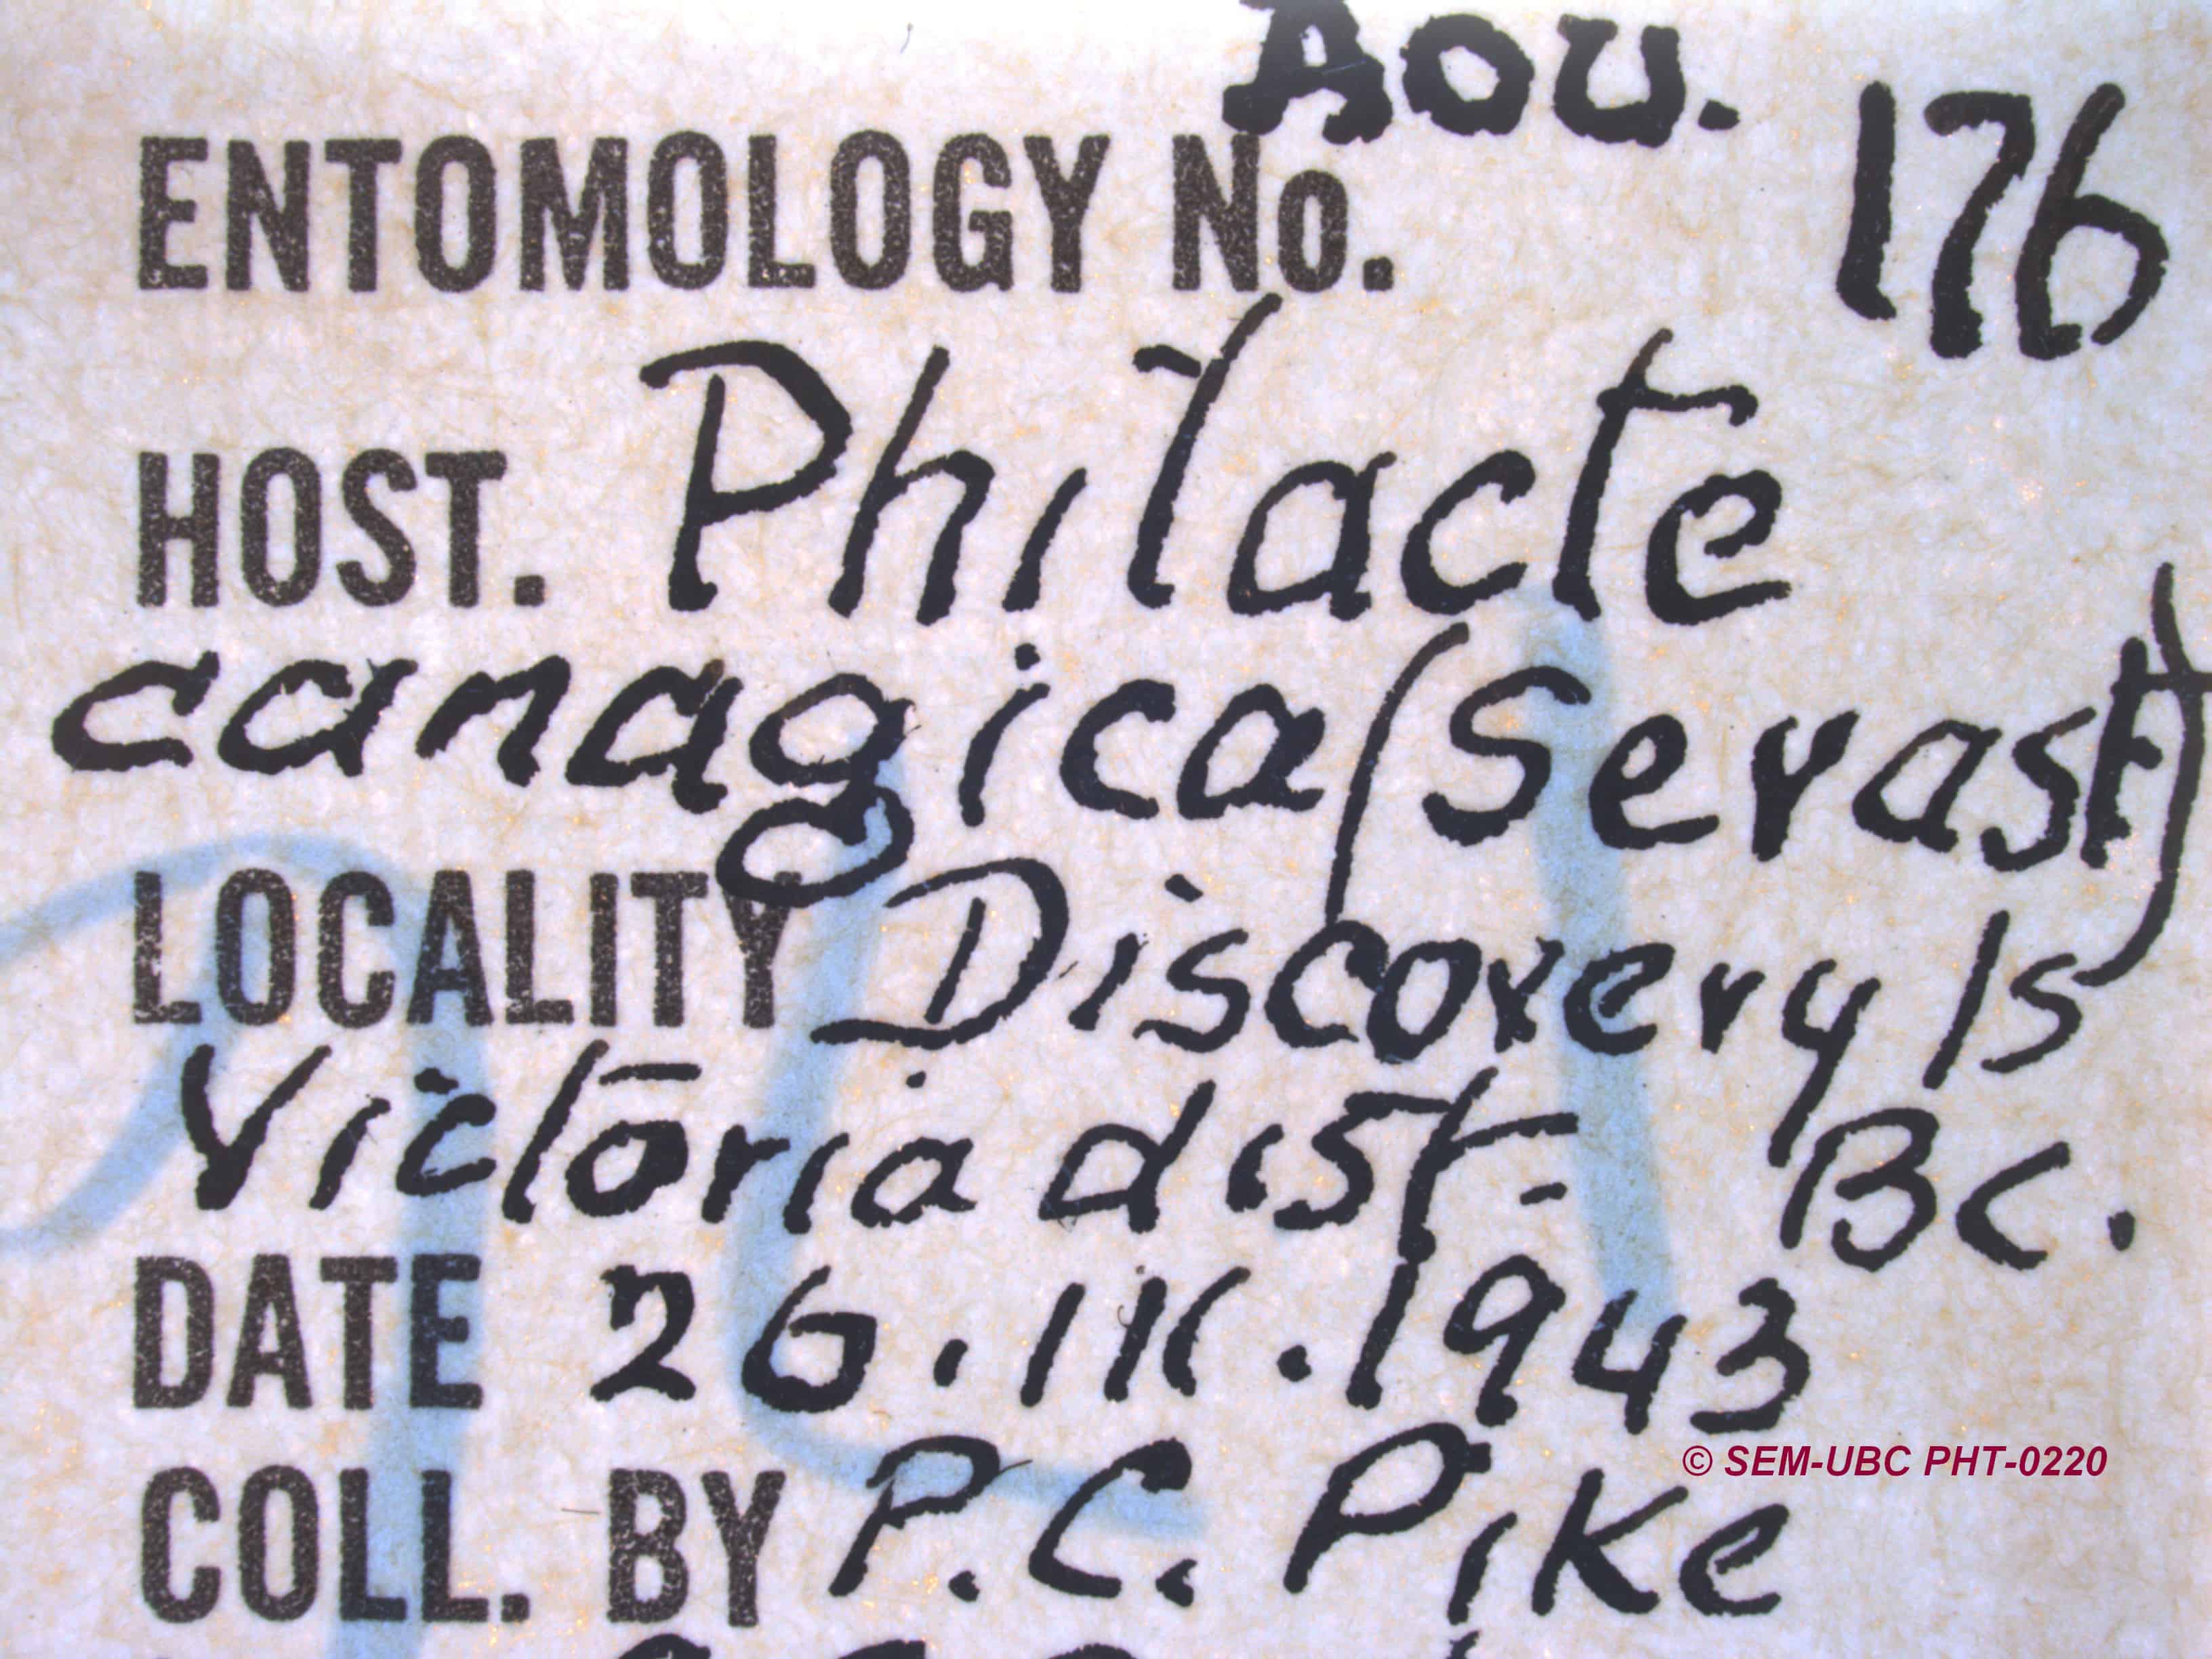 AOU. 176
ENTOMOLOGY No.
HOST. Philacte
canagica (Sevast)
LOCALITY Discovery Is
Victoria dist- BC.
DATE 26.IX.1943
© SEM-UBC PHT-0220
COLL. BY P.C. Pike